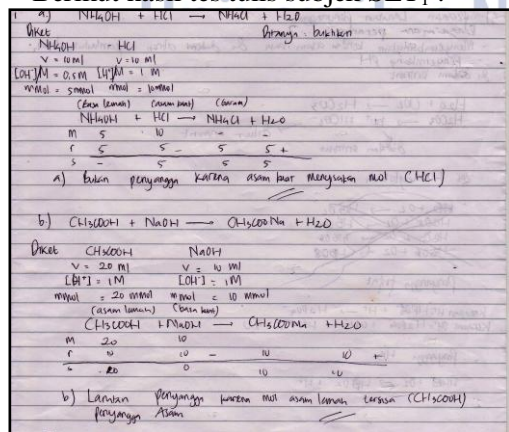 Berikut hasil tes tulis subjek SET1 :
1 a.) NH4OH + HCl → NH4Cl + H2O
Diket Ditanya : buktikan
NH4OH - HCl
V = 10 ml V = 10 ml
[OH-]M = 0,5M [H+]M = 1 M
mmol = 5 mmol mmol = 10 mmol
(basa lemah) (asam kuat) (Garam)
NH4OH + HCl → NH4Cl + H2O
M 5 10 - -
r 5 5 - 5 5 +
s - 5 5 5
a) Bukan penyangga karena asam kuat menyisakan mol (HCl)
b.) CH3COOH + NaOH → CH3COONa + H2O
Diket CH3COOH NaOH
V = 20 ml V = 10 ml
[H+] = 1M [OH-] = 1M
mmol = 20 mmol mmol = 10 mmol
(asam lemah) (basa kuat)
CH3COOH + NaOH → CH3COONa + H2O
M 20 10
r 10 10 - 10 10 +
0 10 10
b) Larutan penyangga karena mol asam lemah tersisa (CH3COOH)
penyangga Asam